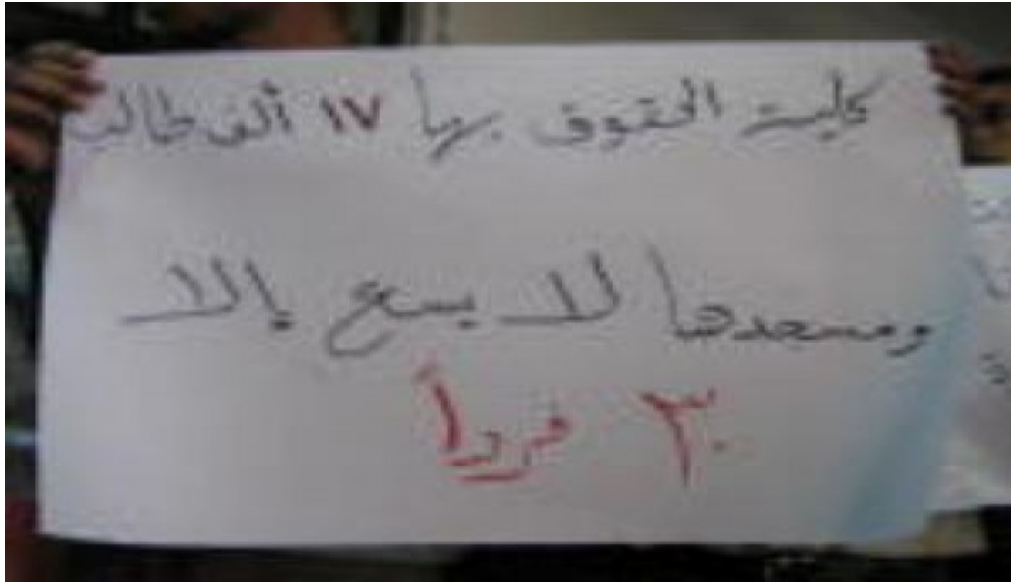 كلية الحقوق بها ١٧ ألف طالب
ومسجدها لا يسع إلا
٣٠ فرداً